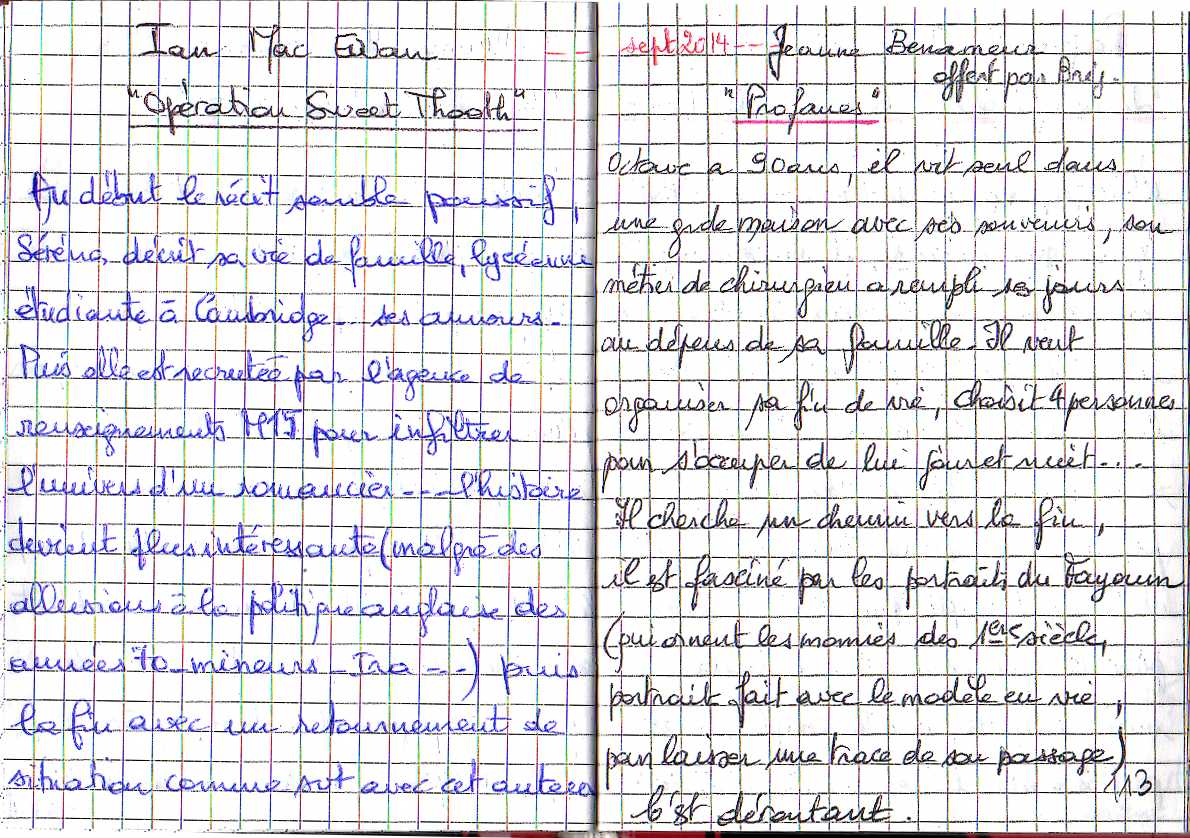 Ian Mac Ewan
"Opération Sweet Thooth"
Au début le récit semble poussif,
Séréna, décrit sa vie de famille, lycéenne
étudiante à Cambridge... ses amours.
Puis elle est recrutée par l'agence de
renseignements MI5 pour infiltrer
l'univers d'un romancier --- l'histoire
devient plus intéressante (malgré des
allusions à la politique anglaise des
années 70_mineurs_Ira ---) puis
la fin avec un retournement de
situation comme svt avec cet auteur
-- sept.2014-- Jeanne Benameur
offert par Brig.
"Profanes"
Octave a 90ans, il vit seul dans
une gde maison avec ses souvenirs, son
métier de chirurgien a rempli ses jours
au dépens de sa famille. Il veut
organiser sa fin de vie, choisit 4 personnes
pour s'occuper de lui jour et nuit....
Il cherche un chemin vers la fin,
il est fasciné par les portraits du Fayoum
(qui ornent les momies des 1ers siècle,
portrait fait avec le modèle en vie,
pour laisser une trace de son passage)
C'est déroutant.
113